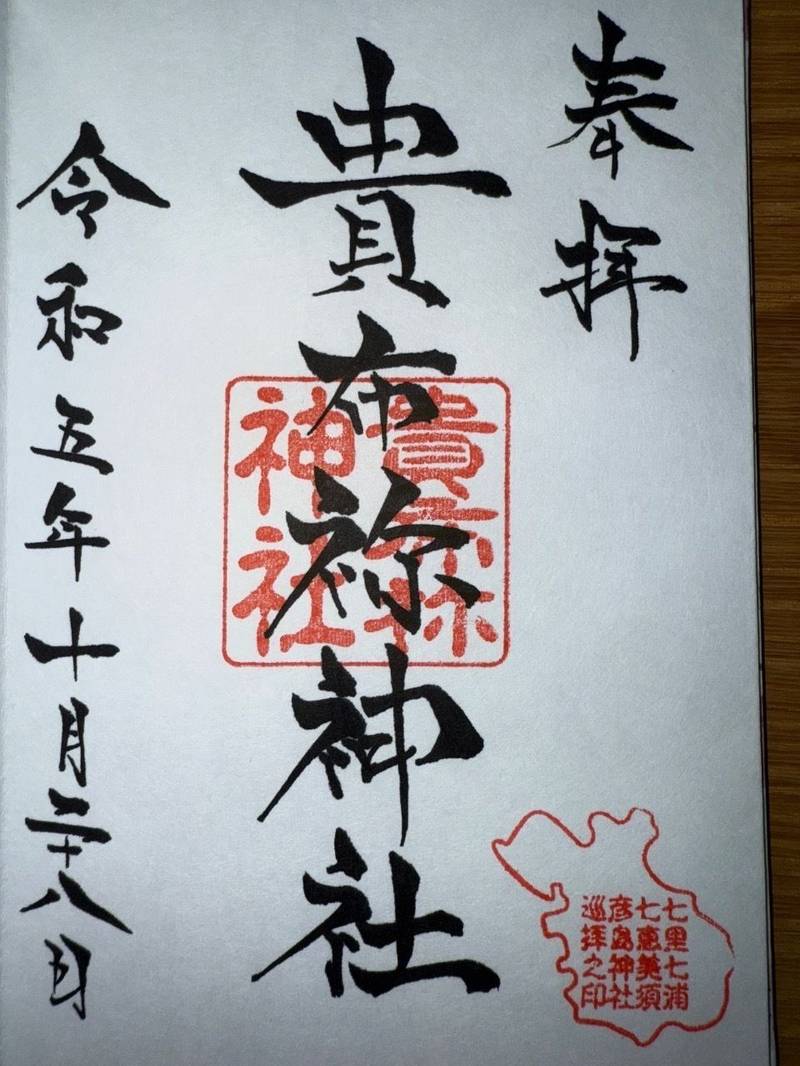 奉拝
貴布祢神社
貴布祢
神社
令和五年十月二十八日
七里七浦
七恵美須
彦島神社
巡拝之印